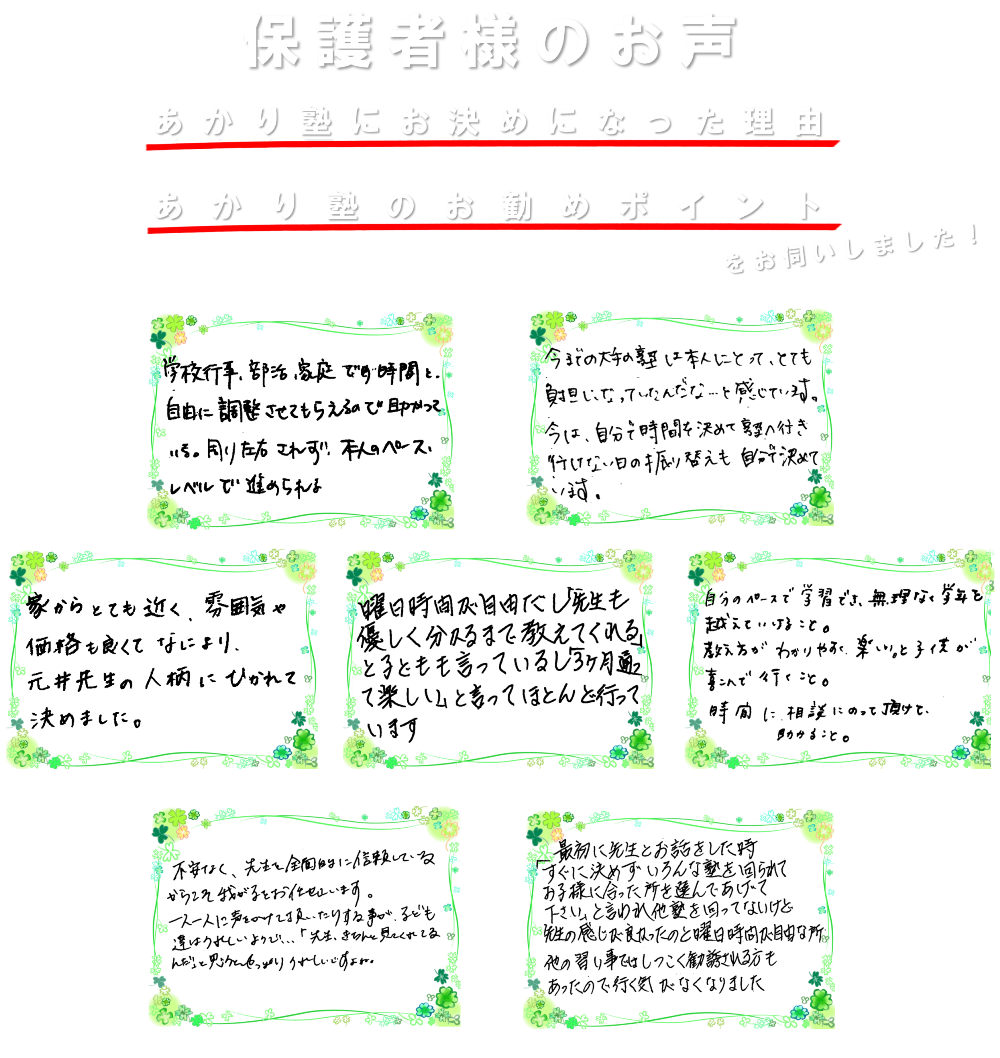 保護者様のお声
あかり塾にお決めになった理由
あかり塾のお勧めポイント
をお伺いしました！
学校行事、部活、家庭で 時間を、
自由に調整させてもらえるので助かって
いる。周り左右されず、本人のペース、
レベルで進められる
今までの大手の塾は本人にとって、とても
負担になっていたんだな…と感じています。
今は、自分で時間を決めて塾へ行き
行けない日の振り替えも自分で決めて
います。
家からとても近く、雰囲気や
価格も良くてなにより、
元井先生の人柄にひかれて
決めました。
曜日時間が自由だし「先生も
優しく分かるまで教えてくれる」
と子どもも言っているし「3ヶ月通っ
て楽しい」と言ってほとんど行って
います
自分のペースで学習でき、無理なく学年を
越えていけること。
教え方がわかりやすく、楽しい。と子供が
喜んで行くこと。
時間に相談にのって頂けて、
助かること。
不安なく、先生を全面的に信頼している
からこそ我が子をお任せしています。
一人一人に声をかけて 見たりする事が、子ども
達はうれしいようで…「先生、きちんと見てくれてる
んだ」と思うと、やっぱりうれしいですよね。
最初に先生とお話をした時
「すぐに決めず、いろんな塾を回られて
お子様に合った所を選んであげて
下さい」と言われ他塾を回ってないけど
先生の感じが良かったのと曜日時間が自由な所
他の習い事ではしつこく勧誘される方も
あったので行く気がなくなりました